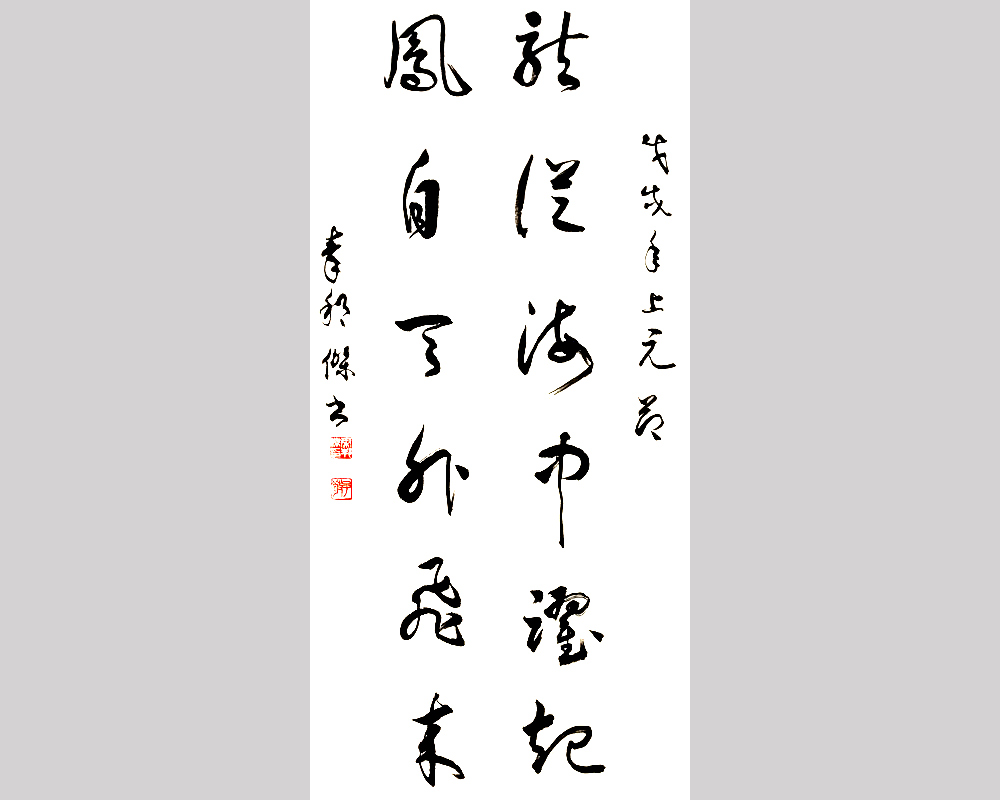 戊戌年上元節
龍從海中躍起
鳳自天外飛來
傑書